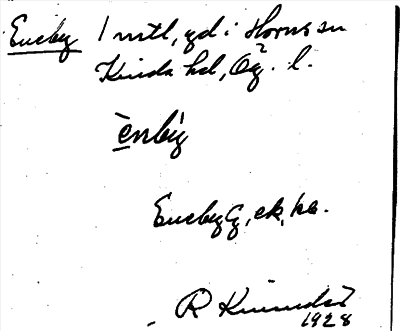 Eneby 1 mtl, gd i Horns sn
Kinda hd, Ög. l.
ènby
Eneby G, ek, ka.
R 1928